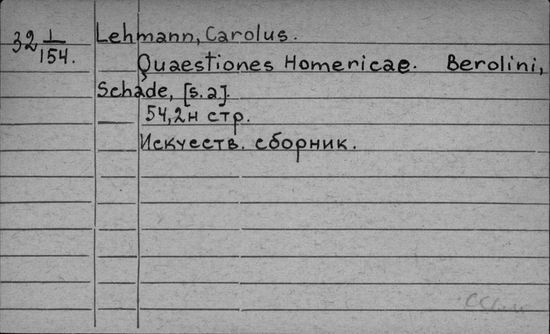 32 1/154. Lehmann, Carolus.
Quaestiones Homericae. Berolini,
Schade, [s.a].
54,2н стр.
Искусств. сборник.